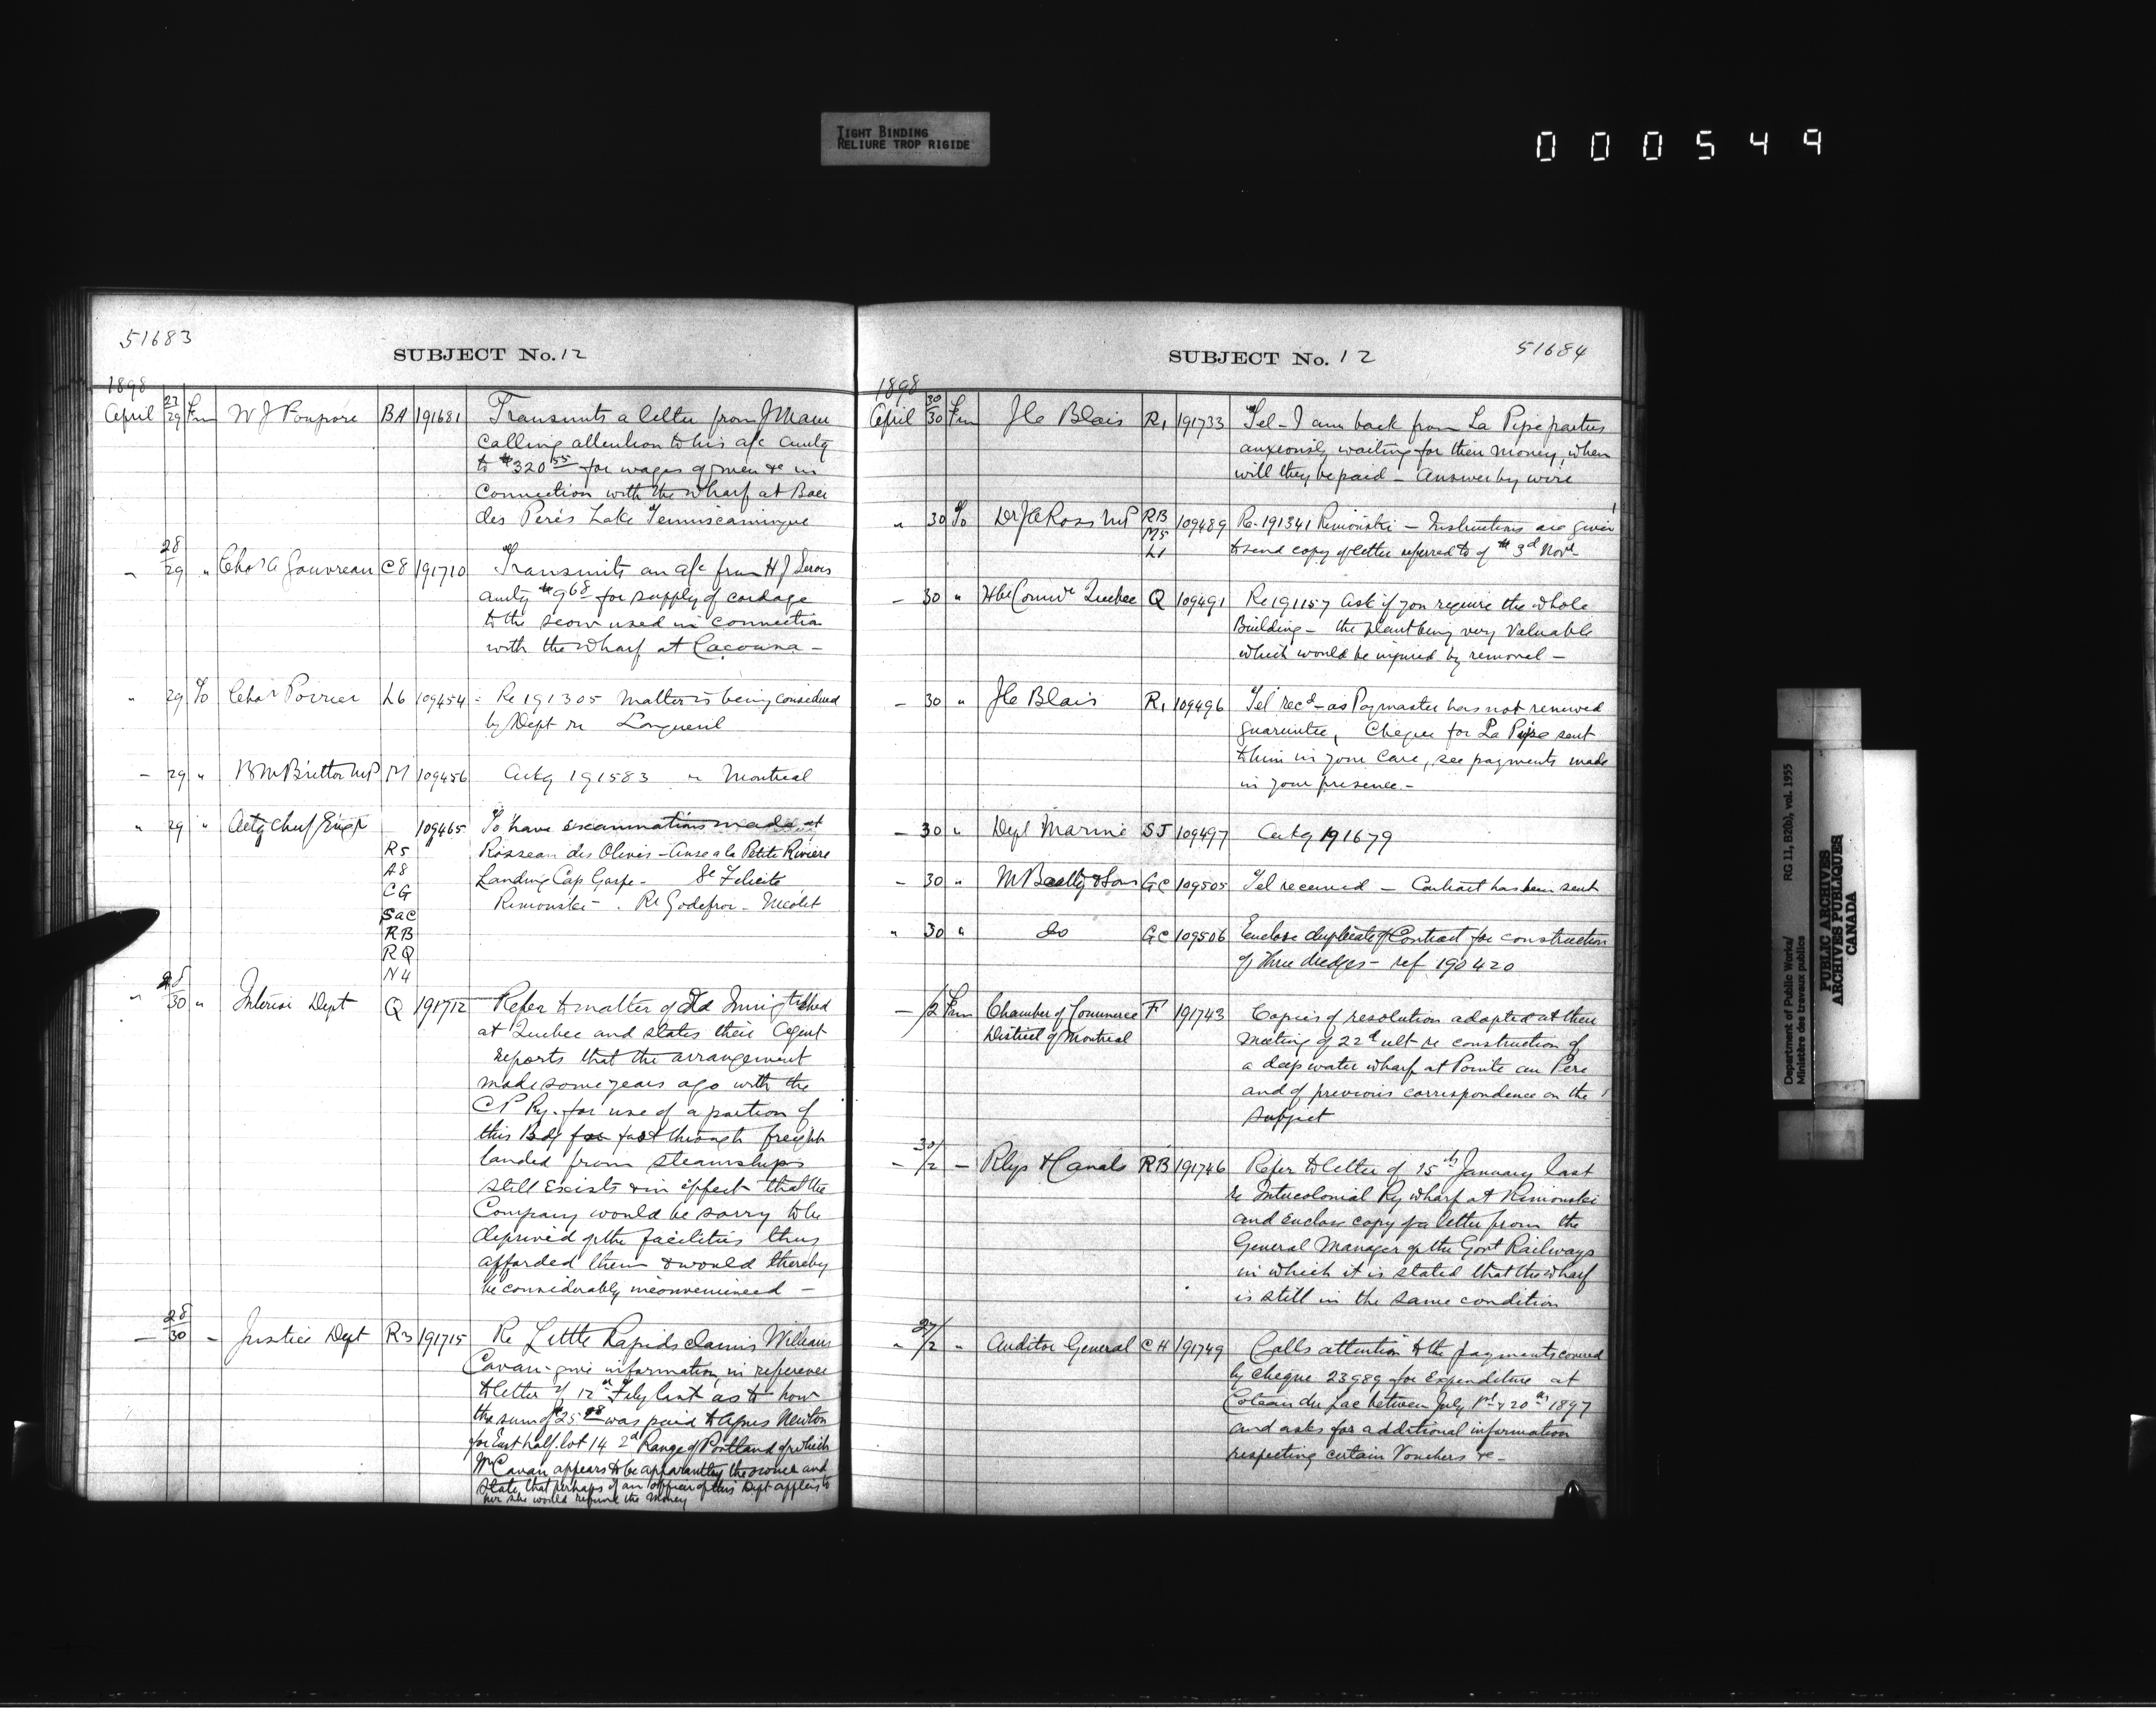 TIGHT BINDING
RELIURE TROP RIGIDE
000549
51683
SUBJECT No. 12
1898
April 27/29 Fm W J Poupore BA 191681 Transmits a letter from J Maru
calling attention to his a/c amtg
to $320 55 for wages of men &c in
connection with the wharf at Baie
des Peres Lake Temiscamingue
" 28/29 " Chas A Gauvreau C8 191710 Transmits an a/c from H J Sirois
amtg $9 68 for supply of cordage
to the scow used in connection
with the wharf at Cacouna -
" 29 To Chas Poirier L6 109454 Re 191305 Matter is being considered
by Dept re Longueuil
- 29 " B M Britton MP M 109456 Ackg 191583 " Montreal
" 29 " Actg Chief Engr 109465 To have examinations made at
R5 Rosseau des Olives - Anse a la Petite Riviere
A8 Landing Cap Gaspe - Ste Felicite
CG Rimouski - . Re Godefroi - Nicolet
SaC
RB
RQ
N4
" 28/30 " Interior Dept Q 191712 Refer to matter of old Immig shed
at Quebec and states their Agent
reports that the arrangement
made some years ago with the
CP Ry. for use of a portion of
this Bdg for fast through freight
landed from steamships
still exists & in effect that the
Company would be sorry to be
deprived of the facilities thus
afforded them & would thereby
be considerably inconvenienced -
- 28/30 - Justice Dept R3 191715 Re Little Rapids claims William
Cavan - give information in reference
to letter of 12th Feby last as to how
the sum of $25 was paid to Agnes Newton
for East half lot 14 2d Range of Portland of which
Wm Cavan appears to be apparantley the owner and
State that perhaps if an officer of this Dept applies to
her she would refund the money
51684
SUBJECT No. 12
1898
April 30/30 Fm J C Blais R1 191733 Tel - I am back from La Pipe parties
anxiously waiting for their money, when
will they be paid - Answer by wire
" 30 To Dr J A Ross MP RB 109489 Re 191341 Rimouski - Instructions are given
M5 to send copy of letter referred to of 3d Novr
L1
- 30 " Hbr Comrs Quebec Q 109491 Re 191157 Ask if you require the whole
Building - the plant being very Valuable
which would be injured by removal -
- 30 " J C Blais R1 109496 Tel recd - as Paymaster has not renewed
guarantee, Cheque for La Pipe sent
to him in your care, see payments made
in your presence -
- 30 " Dept Marine SJ 109497 Ackg 191679
- 30 " M Beatty & Sons GC 109505 Tel received - Contract has been sent
" 30 " do GC 109506 Enclose duplicate of Contract for construction
of three dredges - ref 190420
- /2 Fm Chamber of Commerce F 191743 Copies of resolution adopted at their
District of Montreal meeting of 22d ult re construction of
a deep water wharf at Pointe au Pere
and of previous correspondence on the
subject
- 30/2 - Rlys & Canals RB 191746 Refer to letter of 15th January last
re Intercolonial Ry wharf at Rimouski
and enclose copy of a letter from the
General Manager of the Govt Railways
in which it is stated that the wharf
is still in the same condition
" 27/2 " Auditor General CH 191749 Calls attention to the payments covered
by cheque 23989 for Expenditure at
Coteau du Lac between July 1st & 20th 1897
and asks for additional information
respecting certain Vouchers &c -
Department of Public Works/
Ministère des travaux publics
RG 11, B2(b), vol. 1955
PUBLIC ARCHIVES
ARCHIVES PUBLIQUES
CANADA